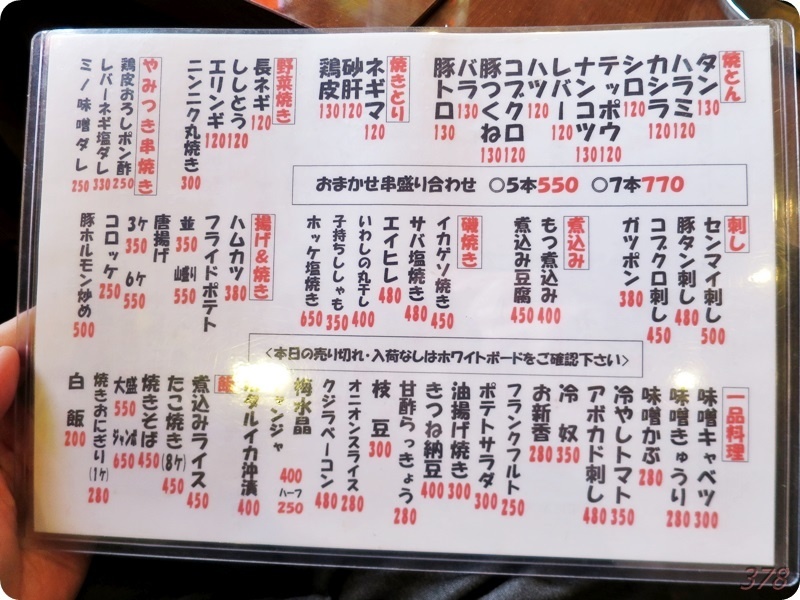 焼とん
タン 130
ハラミ 120
カシラ 120
シロ 120
テッポウ 120
ナンコツ 130
レバー 120
ハツ 120
コブクロ 120
豚つくね 130
バラ 130
豚トロ 130
焼きとり
ネギマ 120
砂肝 120
鶏皮 130
野菜焼き
長ネギ 120
ししとう 120
エリンギ 120
ニンニク丸焼き 300
やみつき串焼き
鶏皮おろしポン酢 250
レバーネギ塩ダレ 330
ミノ味噌ダレ 250
おまかせ串盛り合わせ ○5本550 ○7本770
刺し
センマイ刺し 500
豚タン刺し 480
コブクロ刺し 450
ガツポン 380
煮込み
もつ煮込み 400
煮込み豆腐 450
磯焼き
イカゲソ焼き 450
サバ塩焼き 480
エイヒレ 480
いわしの丸干し 400
子持ちししゃも 350
ホッケ塩焼き 650
揚げ&焼き
ハムカツ 380
フライドポテト
並 350 盛り 550
唐揚げ
3ケ 350 6ケ 550
コロッケ 250
豚ホルモン炒め 500
<本日の売り切れ・入荷なしはホワイトボードをご確認下さい>
一品料理
味噌キャベツ 300
味噌きゅうり 280
味噌かぶ 280
冷やしトマト 350
アボカド刺し 480
冷奴 350
お新香 280
フランクフルト 250
ポテトサラダ 300
油揚げ焼き 300
きつね納豆 400
甘酢らっきょう 280
枝豆 300
オニオンスライス 280
クジラベーコン 480
梅水晶
ンジャ 400 ハーフ 250
タルイカ沖漬 400
飯
煮込みライス 450
たこ焼き(8ケ) 450
焼きそば 450
大盛 550 ジャンボ 650
焼きおにぎり(1ケ) 280
白飯 200
378